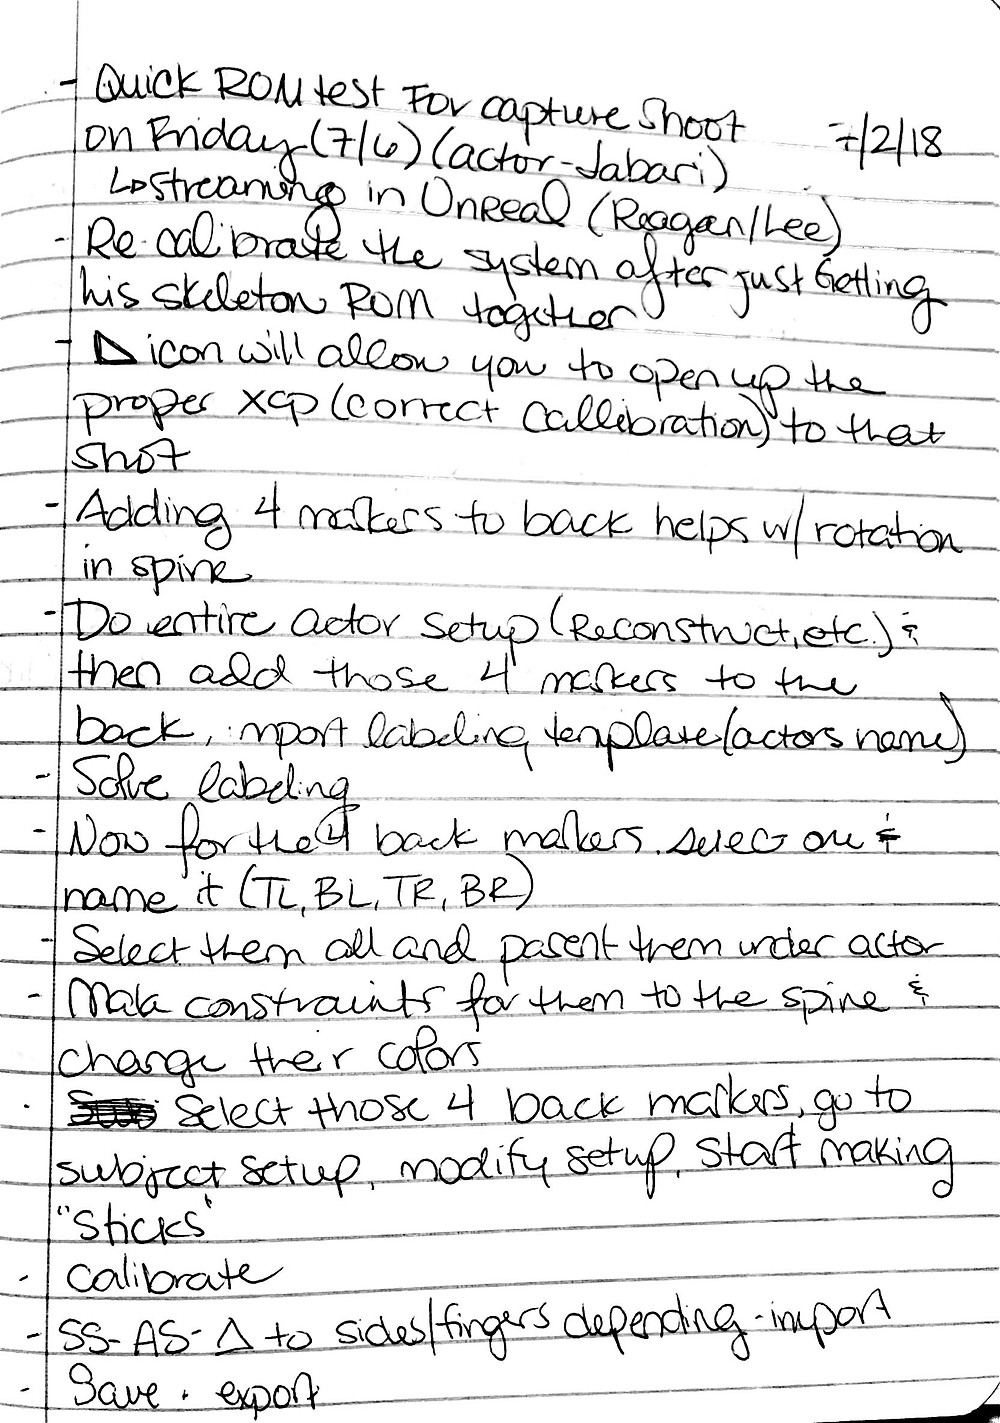 - Quick ROM test For capture Shoot
7/2/18
on Friday (7/6) (actor-Jabari)
↳ streaming in Unreal (Reagan/Lee)
- Re-calibrate the system after just Getting
his skeleton ROM together
- ◺ icon will allow you to open up the
proper xcp (correct Callibration) to that
shot
- Adding 4 markers to back helps w/ rotation
in spine
- Do entire actor setup (Reconstruct, etc.) &
then add those 4 markers to the
back, import labeling template (actors name)
- Solve labeling
- Now for the 4 back makers. select one &
name it (TL, BL, TR, BR)
- Select them all and parent them under actor
- Make constraints for them to the spine &
change their colors
- Select those 4 back markers, go to
subject setup, modify setup, start making
"Sticks"
- Calibrate
- SS - AS - Δ to sides/fingers depending - import
- Save · export